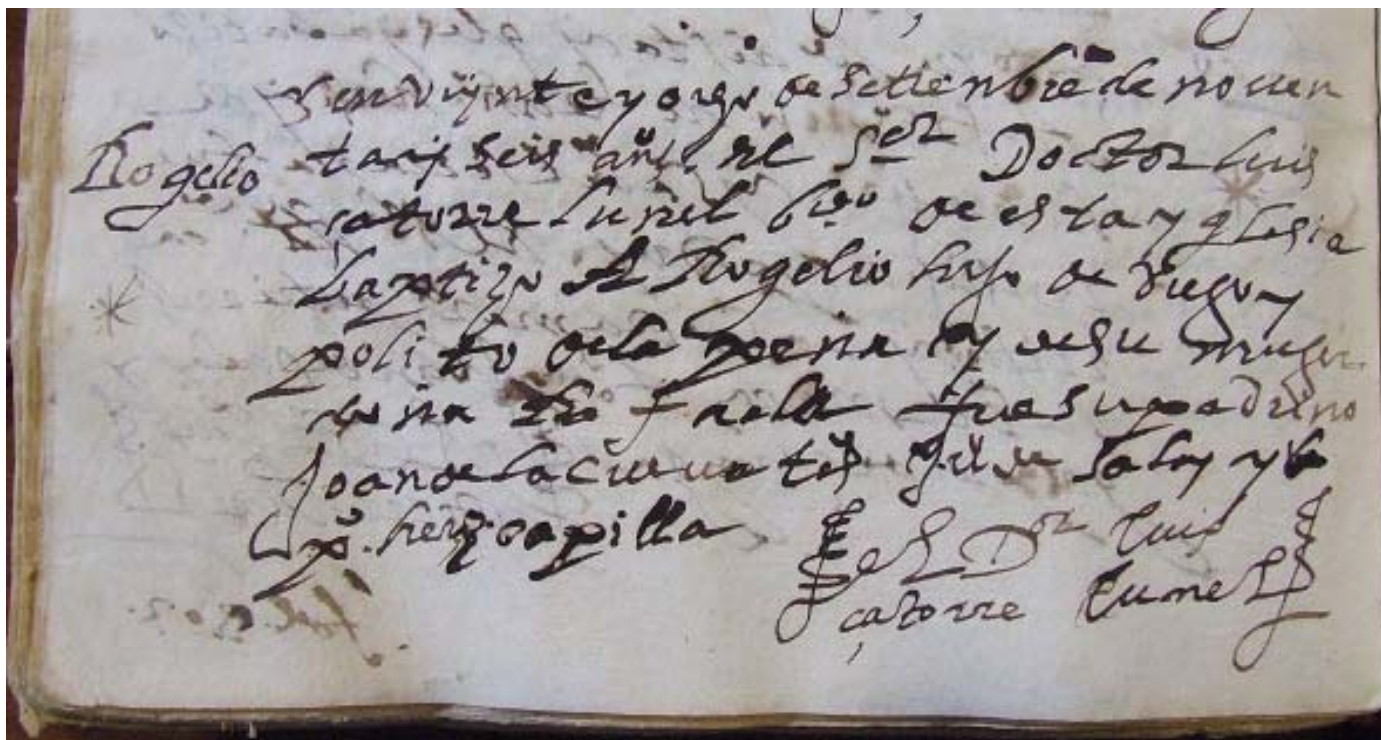 en veynte y ocho de setienbre de noven
Rogelio
ta y seis años el Sor Doctor luis
çatorre lunel bdo de esta yglesia
baptizo A Rogelio hijo de diego y
polito de la pena y de su muger
fue su padrino
Joan de la cueva tos gil de salas y
po herz capilla
el Dor luis
çatorre lunel